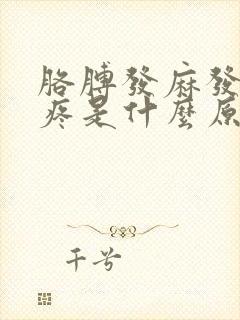 胳膊發麻發
疼是什麼原
千兮